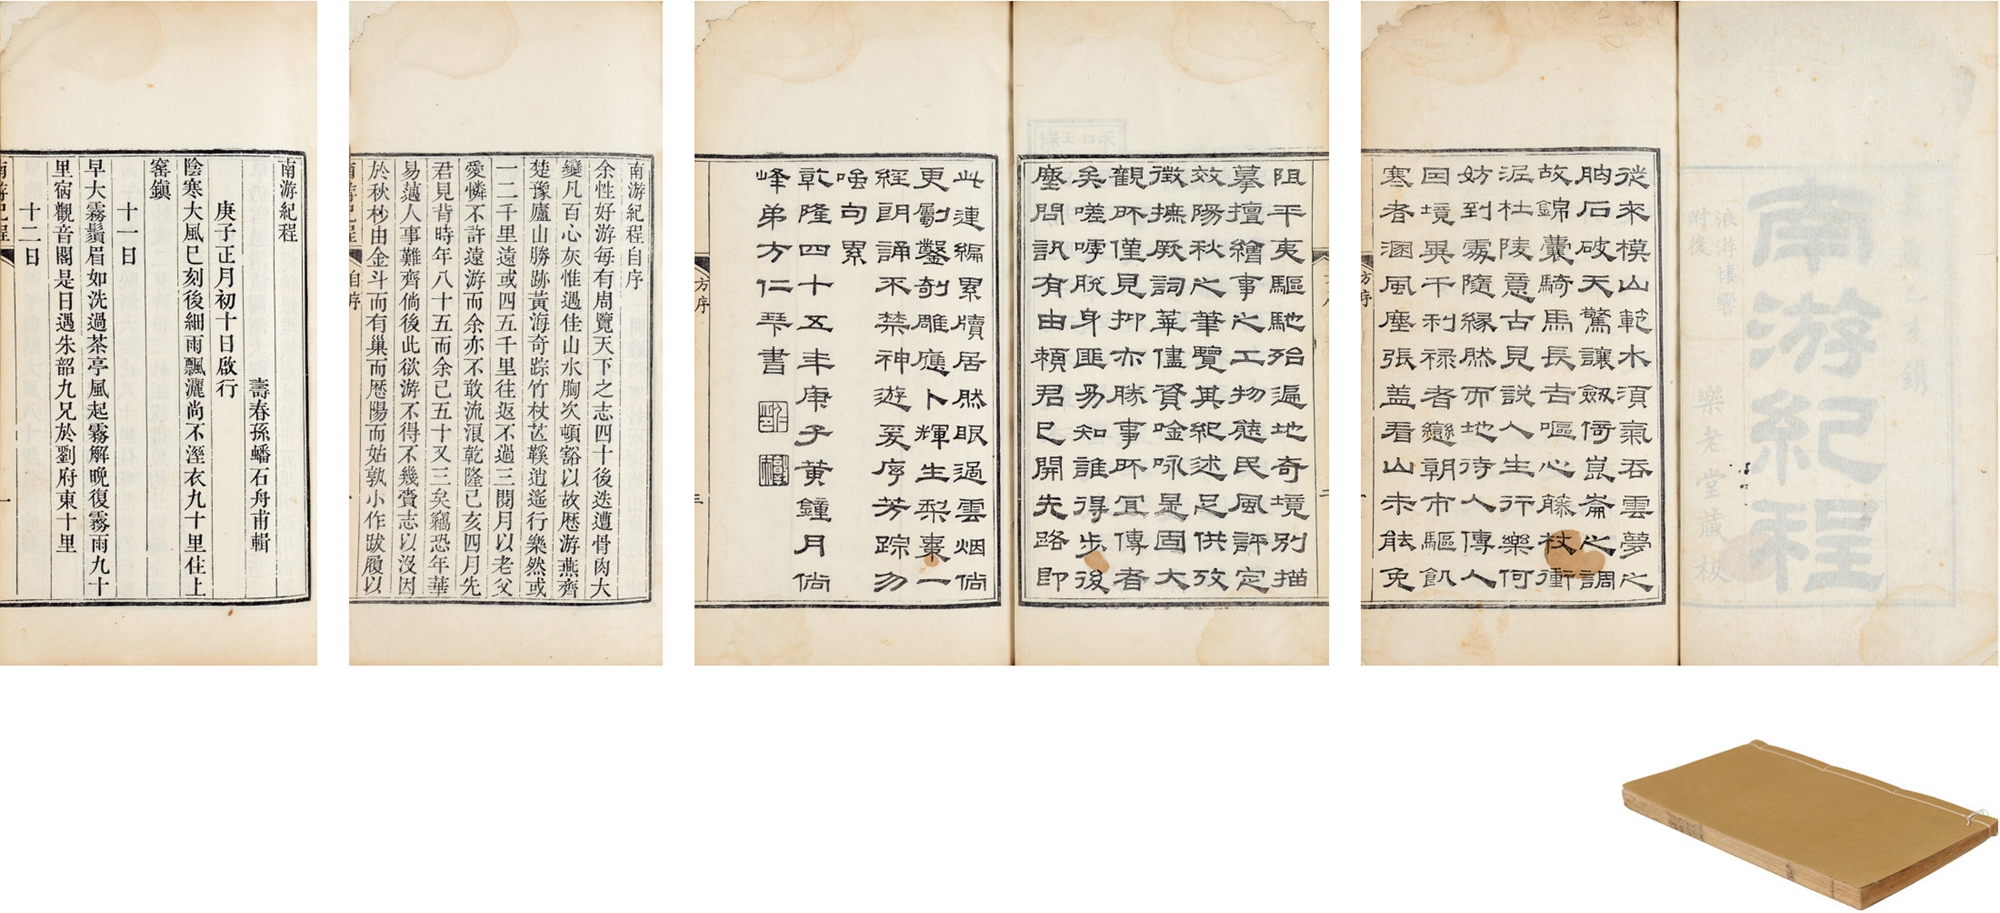 南游紀程
樂老堂藏板
從來模山範水須氣吞雲夢之
胸石破天驚讓劔倚崑崙之調
故錦囊騎馬長吉嘔心藤杖衝
泥杜陵意古見說人生行樂何
妨到處隨緣然而地待人傳人
因境異干利祿者戀朝市驅飢
寒者溷風塵張盖看山未能免
方序
阻平夷驅馳殆遍地奇境別描
摹擅繪事之工物態民風評定
效陽秋之筆覽其紀述足供攷
徵摭厥詞華儘資唫咏是固大
觀所僅見抑亦勝事所宜傳者
矣嗟嘑脫身匪易知誰得步後
塵問訊有由賴君已開先路即
此連編累牘居然眼過雲烟倘
更劂鑿剞雕應卜輝生梨棗一
經朗誦不禁神遊爰序芳踪勿
嗤句累
乾隆四十五年庚子黃鐘月尙
峰弟方仁琴書
方序
三
南游紀程自序
余性好游每有周覽天下之志四十後迭遭骨肉大
變凡百心灰惟遇佳山水胸次頓豁以故歷游燕齊
楚豫廬山勝跡黃海奇踪竹杖芒鞵逍遙行樂然或
一二千里遠或四五千里往返不過三閱月以老父
愛憐不許遠游而余亦不敢流浪乾隆己亥四月先
君見背時年八十五而余已五十又三矣竊恐年華
易邁人事難齊倘後此欲游不得不幾賫志以沒因
於秋杪由金斗而有巢而歷陽而姑孰小作跋履以
南游紀程
自序
一
南游紀程
壽春孫蟠石舟甫輯
庚子正月初十日啟行
陰寒大風巳刻後細雨飄灑尚不溼衣九十里住上
窰鎮
十一日
早大霧鬚眉如洗過茶亭風起霧解晚復霧雨九十
里宿觀音閣是日遇朱韶九兄於劉府東十里
十二日
南游紀程
一